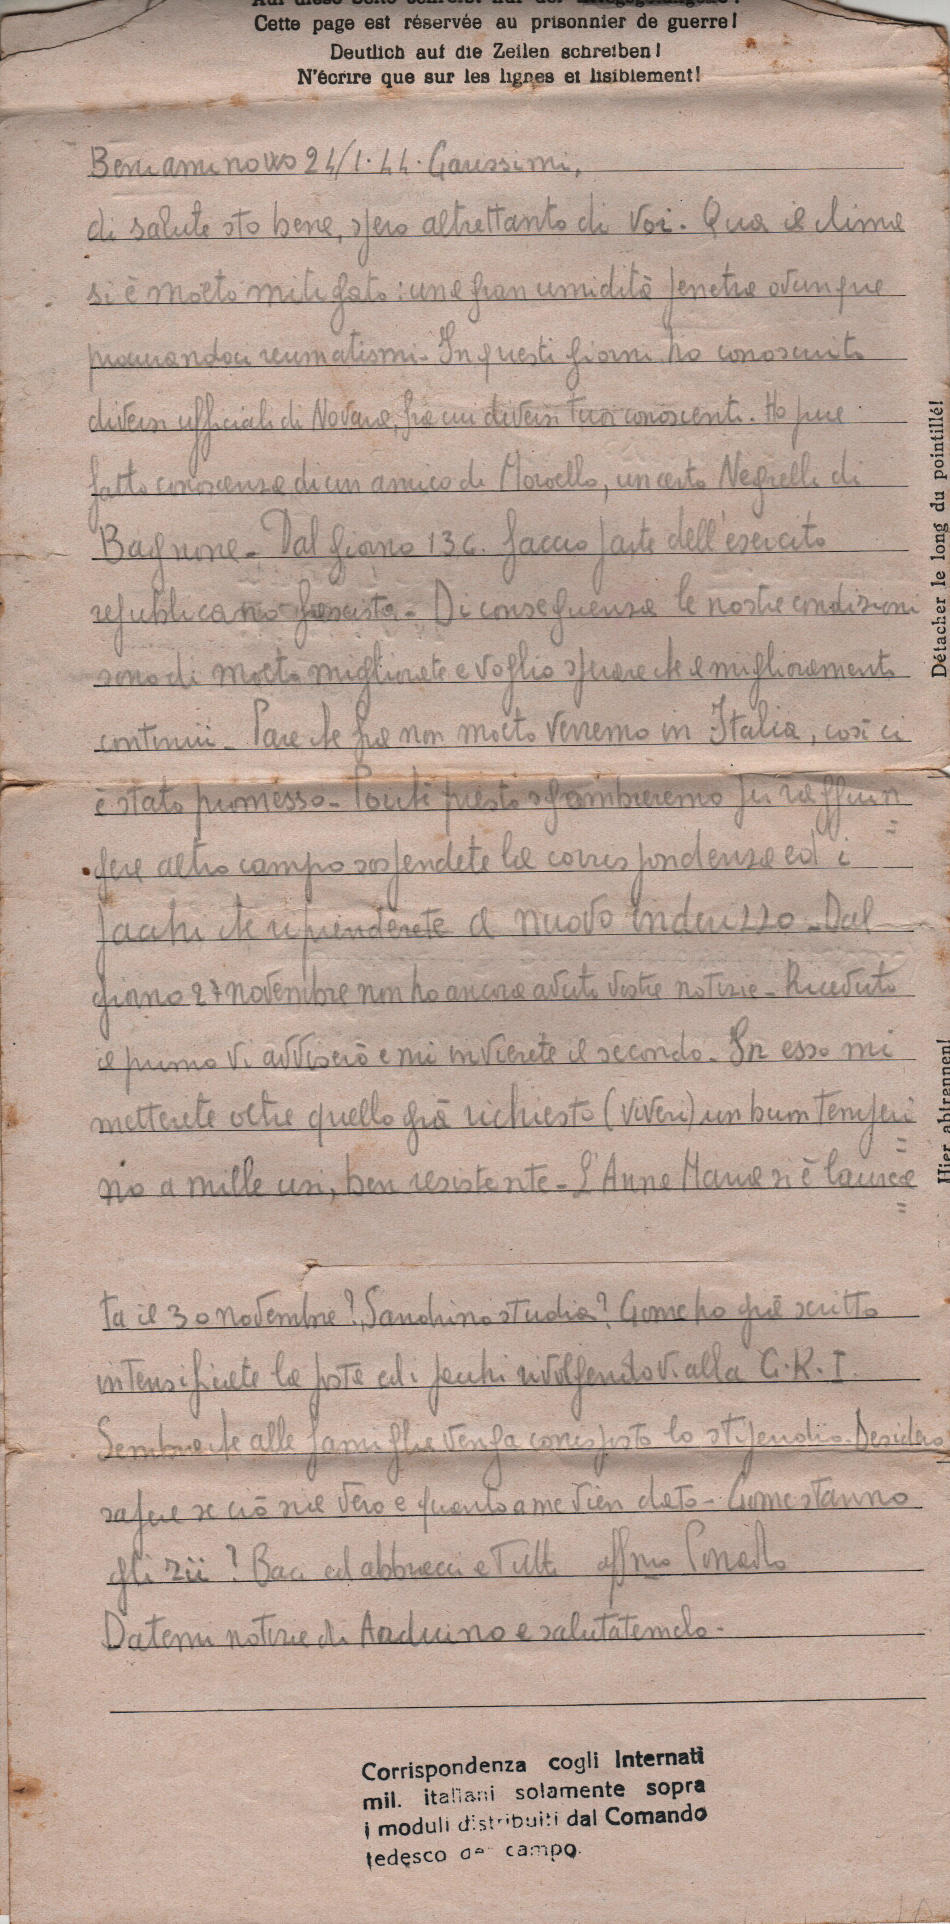 Auf diese Seite schreibt nur der Kriegsgefangene!
Cette page est réservée au prisonnier de guerre!
Deutlich auf die Zeilen schreiben!
N'écrire que sur les lignes et lisiblement!
Beniaminowo 24/1.44. Carissimi,
di salute sto bene, spero altrettanto di voi. Qua il clima
si è molto mitigato: una gran umidità penetra ovunque
procurandoci reumatismi. In questi giorni ho conosciuto
diversi ufficiali di Novara, fra cui diversi tuoi conoscenti. Ho pure
fatto conoscenza di un amico di, un certo Negrelli di
Bagnone. Dal giorno 13 c. faccio parte dell'esercito
repubblicano fascista. Di conseguenza le nostre condizioni
sono di molto migliorate e voglio sperare che il miglioramento
continui. Pare che fra non molto verremo in Italia, così ci
è stato promesso. Poiché presto sgombreremo per raggiun
gere altro campo sospendete la corrispondenza ed i
pacchi che riprenderete a nuovo indirizzo. Dal
giorno 27 novembre non ho ancora avuto vostre notizie. Ricevuto
il primo vi avviserò e mi invierete il secondo. In esso mi
metterete oltre quello già richiesto (viveri) un buon temperi
no a mille usi, ben resistente. L'Anna Maria si è laurea
ta il 30 novembre? Sandrino studia? Come ho già scritto
intensificate la posta ed i pacchi rivolgendovi alla C.R.I.
Sembra che alle famiglie venga corrisposto lo stipendio. Desidero
sapere se ciò sia vero e quanto a me vien dato. Come stanno
gli zii? Baci ed abbracci a tutti aff.mo
Datemi notizie di Arduino e salutatemelo.
Détacher le long du pointillé!
Hier abtrennen!
Corrispondenza cogli Internati
mil. italiani solamente sopra
i moduli distribuiti dal Comando
tedesco del campo.